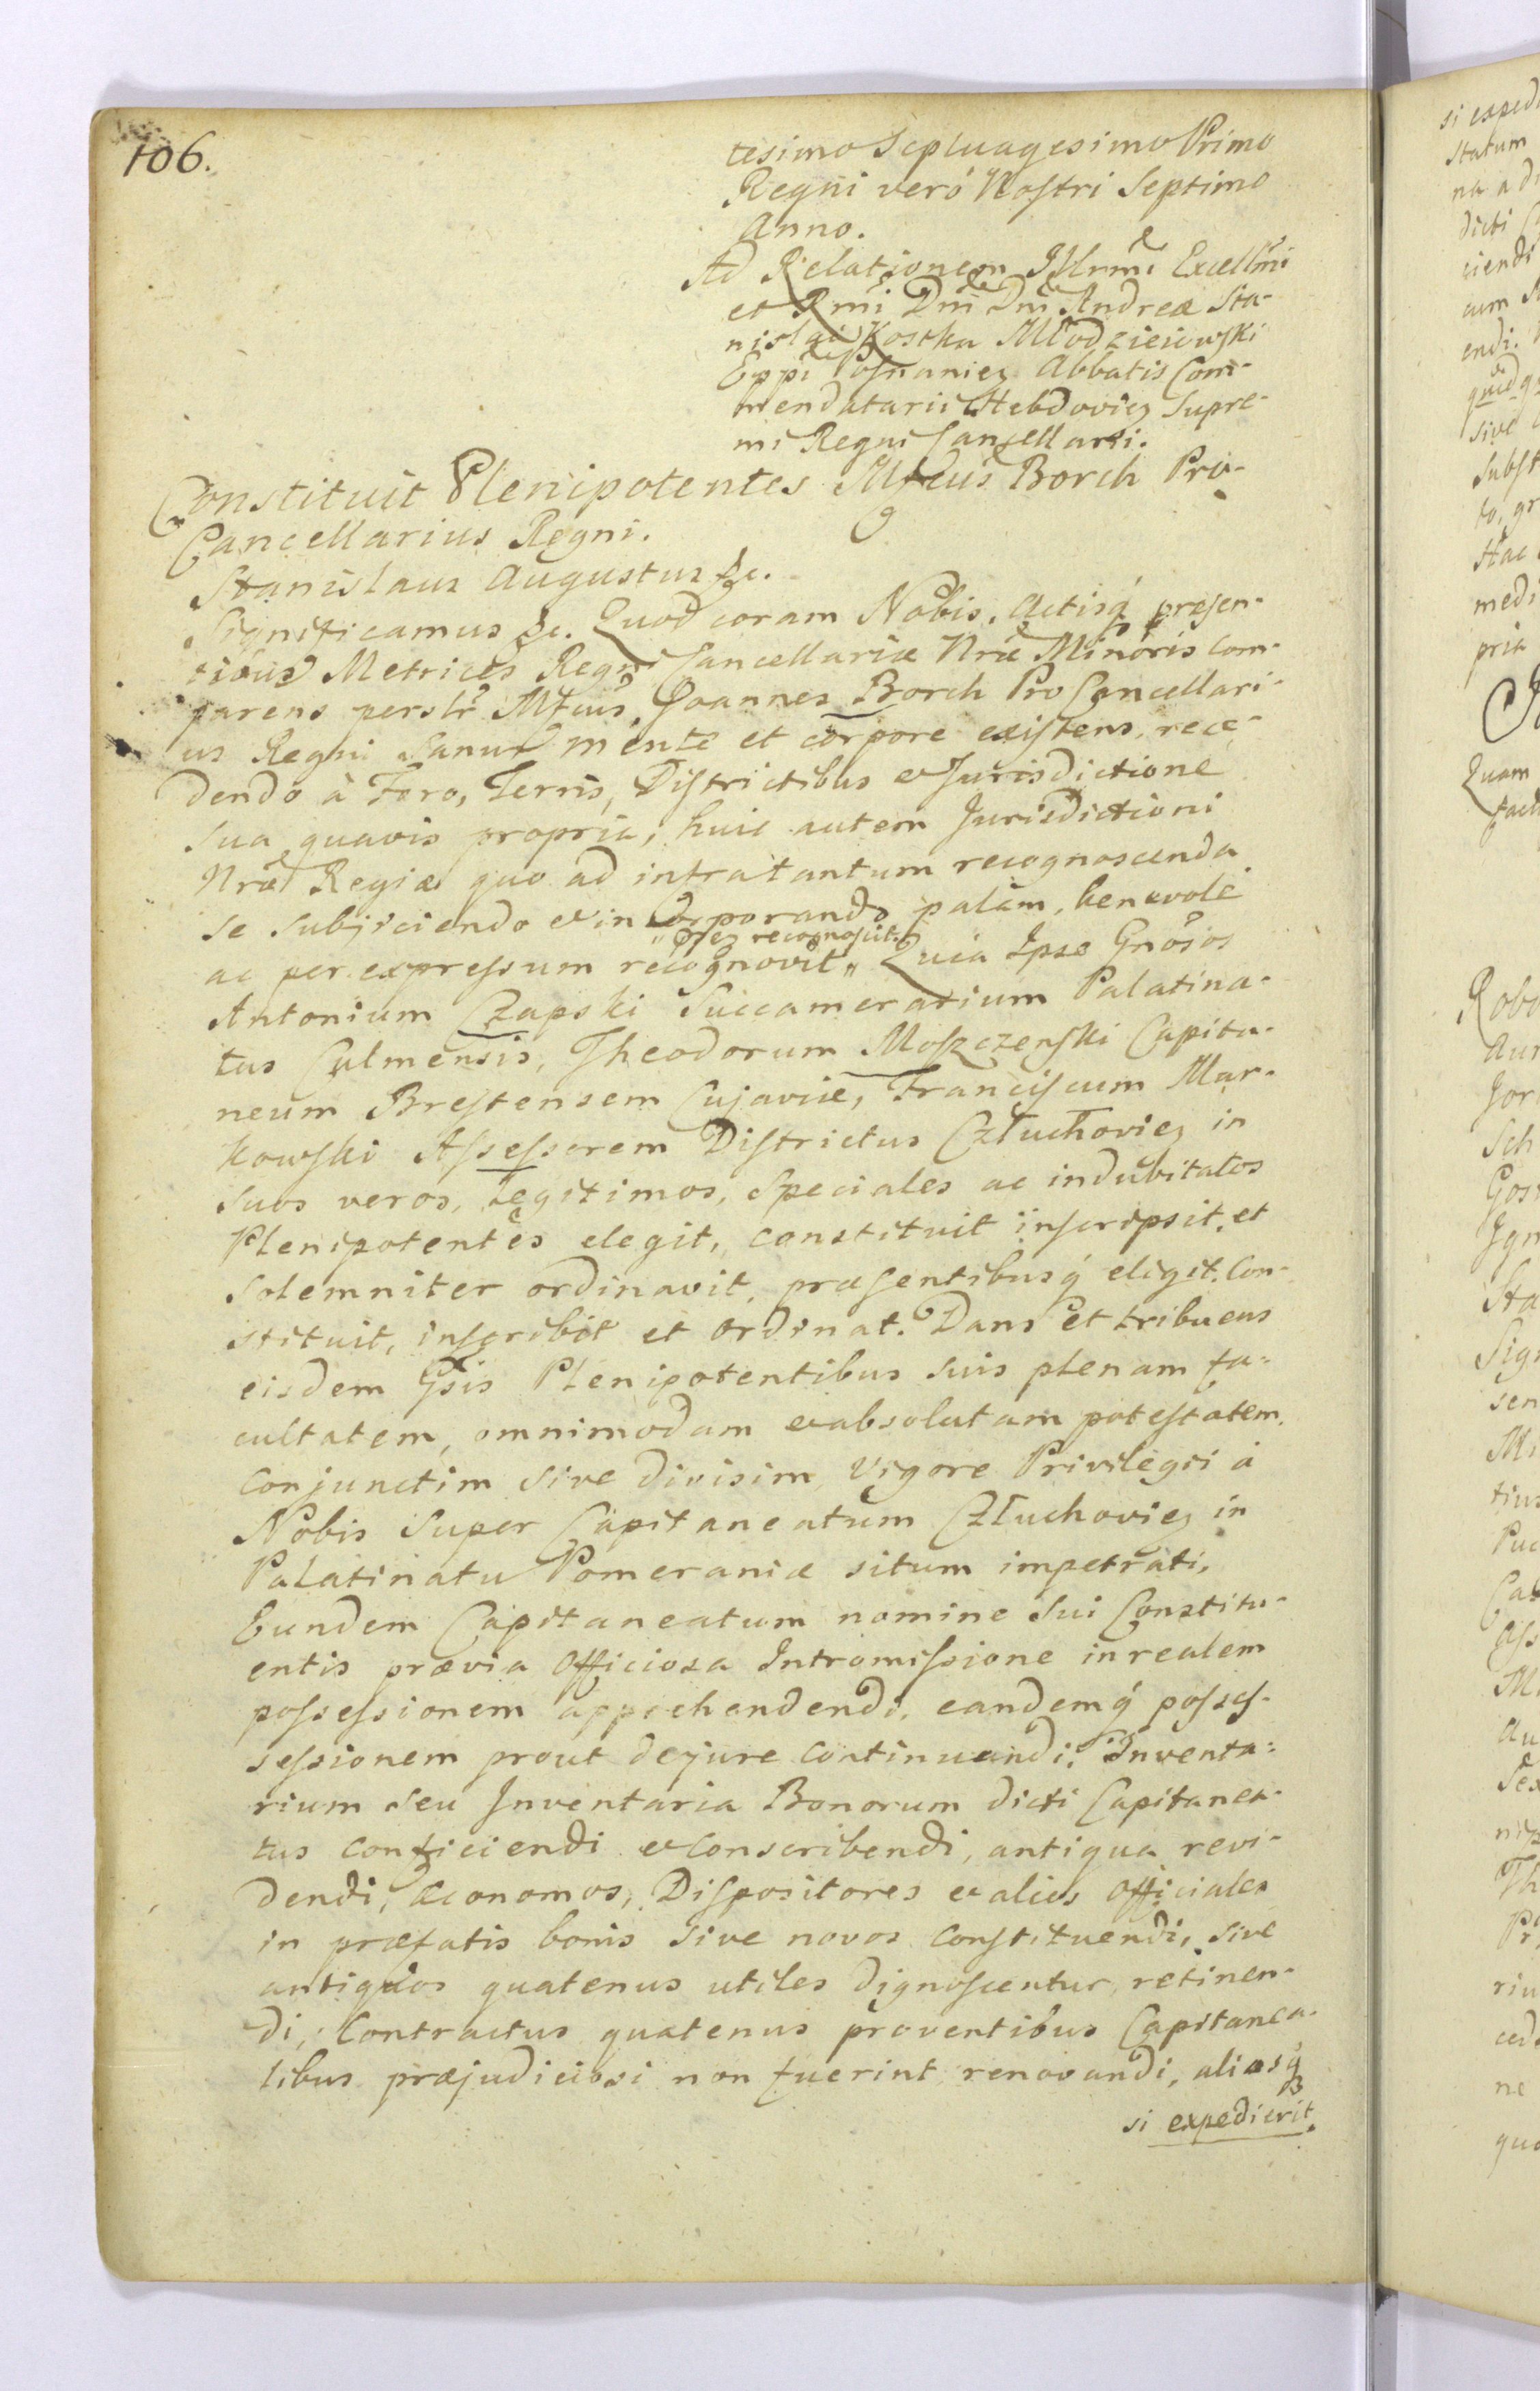 106.
tesimo Septuagesimo Primo
Regni veró Nostri Septimo
Anno.
Ad Relationem Illrmi Excellmi
et Rmi Dni Dni Andreæ Sta-
nislai Kostka Młodzieiowski
Eppi Posnanien Abbatis Com-
mendatarii Hebdovien Supre-
mi Regni Cancellarii.
Constituit Plenipotentes Mfcus Borch Pro-
Cancellarius Regni.
Stanislaus Augustus &c.
Significamus &c. Quod coram Nobis, Actisq́ præsen-
tibus Metrices Regni Cancellariæ Nræ Minoris com-
parens perslr Mfcus Joannes Borch Pro Cancellari-
us Regni Sanus mente et corpore existens, rece-
dendo à Foro, Terris, Districtibus et Jurisdictione
sua quavis propria, huic autem Jurisdictioni
Nræ Regiæ quo ad infra tantum recognoscenda
se subjiciendo et in Corporando palám, benevolé
ac per expressum recognovit „ Quia Ipse Gnosos
„ prsez recognoscit
Antonium Czapski Succamerarium Palatina-
tus Culmensis, Theodorum Moszczenski Capita-
neum Brestensem Cujaviæ, Franciscum Mar-
kowski Assessorem Districtus Człuchovien in
suos veros, legitimos, speciales ac indubitatos
Plenipotentes elegit, constituit inscripsit, et
solemniter ordinavit, præsentibusq́ eligit, con-
stituit, inscribit et ordinat. Dans et tribuens
eisdem Gsis Plenipotentibus suis plenam fa-
cultatem, omnimodam et absolutam potestatem,
conjunctim sive divisim, Vigore Privilegii á
Nobis super Capitaneatum Człuchovien in
Palatinatu Pomeraniæ situm impetrati,
Eundem Capitaneatum nomine sui Constitu-
entis prævia Officiosa Intromissione in realem
possessionem apprehendendi, eandemq́ posses-
sessionem prout de jure continuandi, Inventa-
rium seu Inventaria Bonorum dicti Capitanea-
tus conficiendi et conscribendi, antiqua revi-
dendi, Œconomos, Dispositores et alios Officiales
in præfatis bonis sive novos constituendi, sive
antiquos quatenus utiles dignoscentur, retinen-
di, Contractus quatenus proventibus Capitanea-
libus præjudiciosi non fuerint renovandi, aliosq́
si expedierit